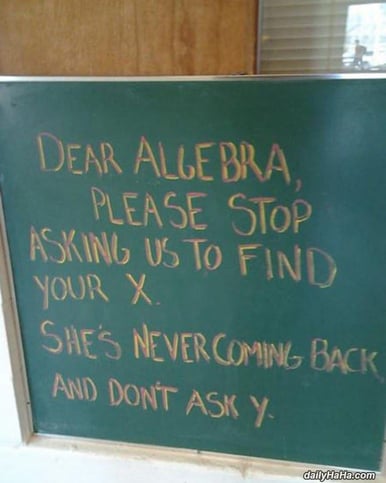 DEAR ALGEBRA,
PLEASE STOP
ASKING US TO FIND
YOUR X.
SHE'S NEVER COMING BACK
AND DON'T ASK Y.
dailyHaHa.com